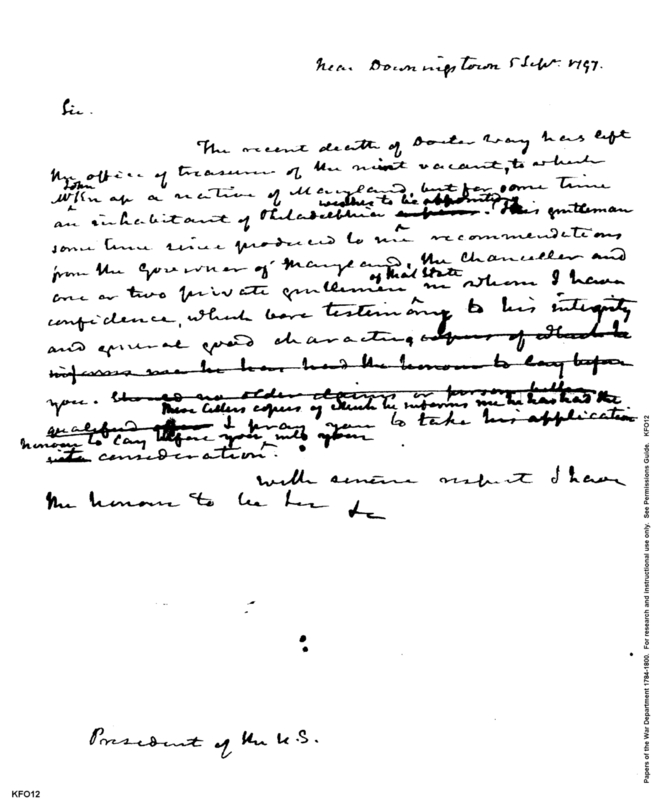 Near Downingstown 5 Sepr. 1797.
Sir.
The recent death of Doctor Way has left
the office of treasurer of the mint vacant, to which
John
Mr Knap a native of Maryland, but for some time
wishes to be appointed
an inhabitant of Philadelphia. This gentleman
some time since produced to me recommendations
from the Governor of Maryland, the Chancellor and
of that State
one or two private gentlemen in whom I have
confidence, which bore testimony to his integrity
and general good character, copies of which he
informs me he has had the honour to lay before
you. Should no older claims or person better
These letters copies of which he informs me he has had the
qualified I pray you to take his application
honour to lay before you, into your
consideration.
With sincere respect I have
the honour to be Sir &c
President of the U.S.
Papers of the War Department 1784-1800. For research and instructional use only. See Permissions Guide. KFO12
KFO12